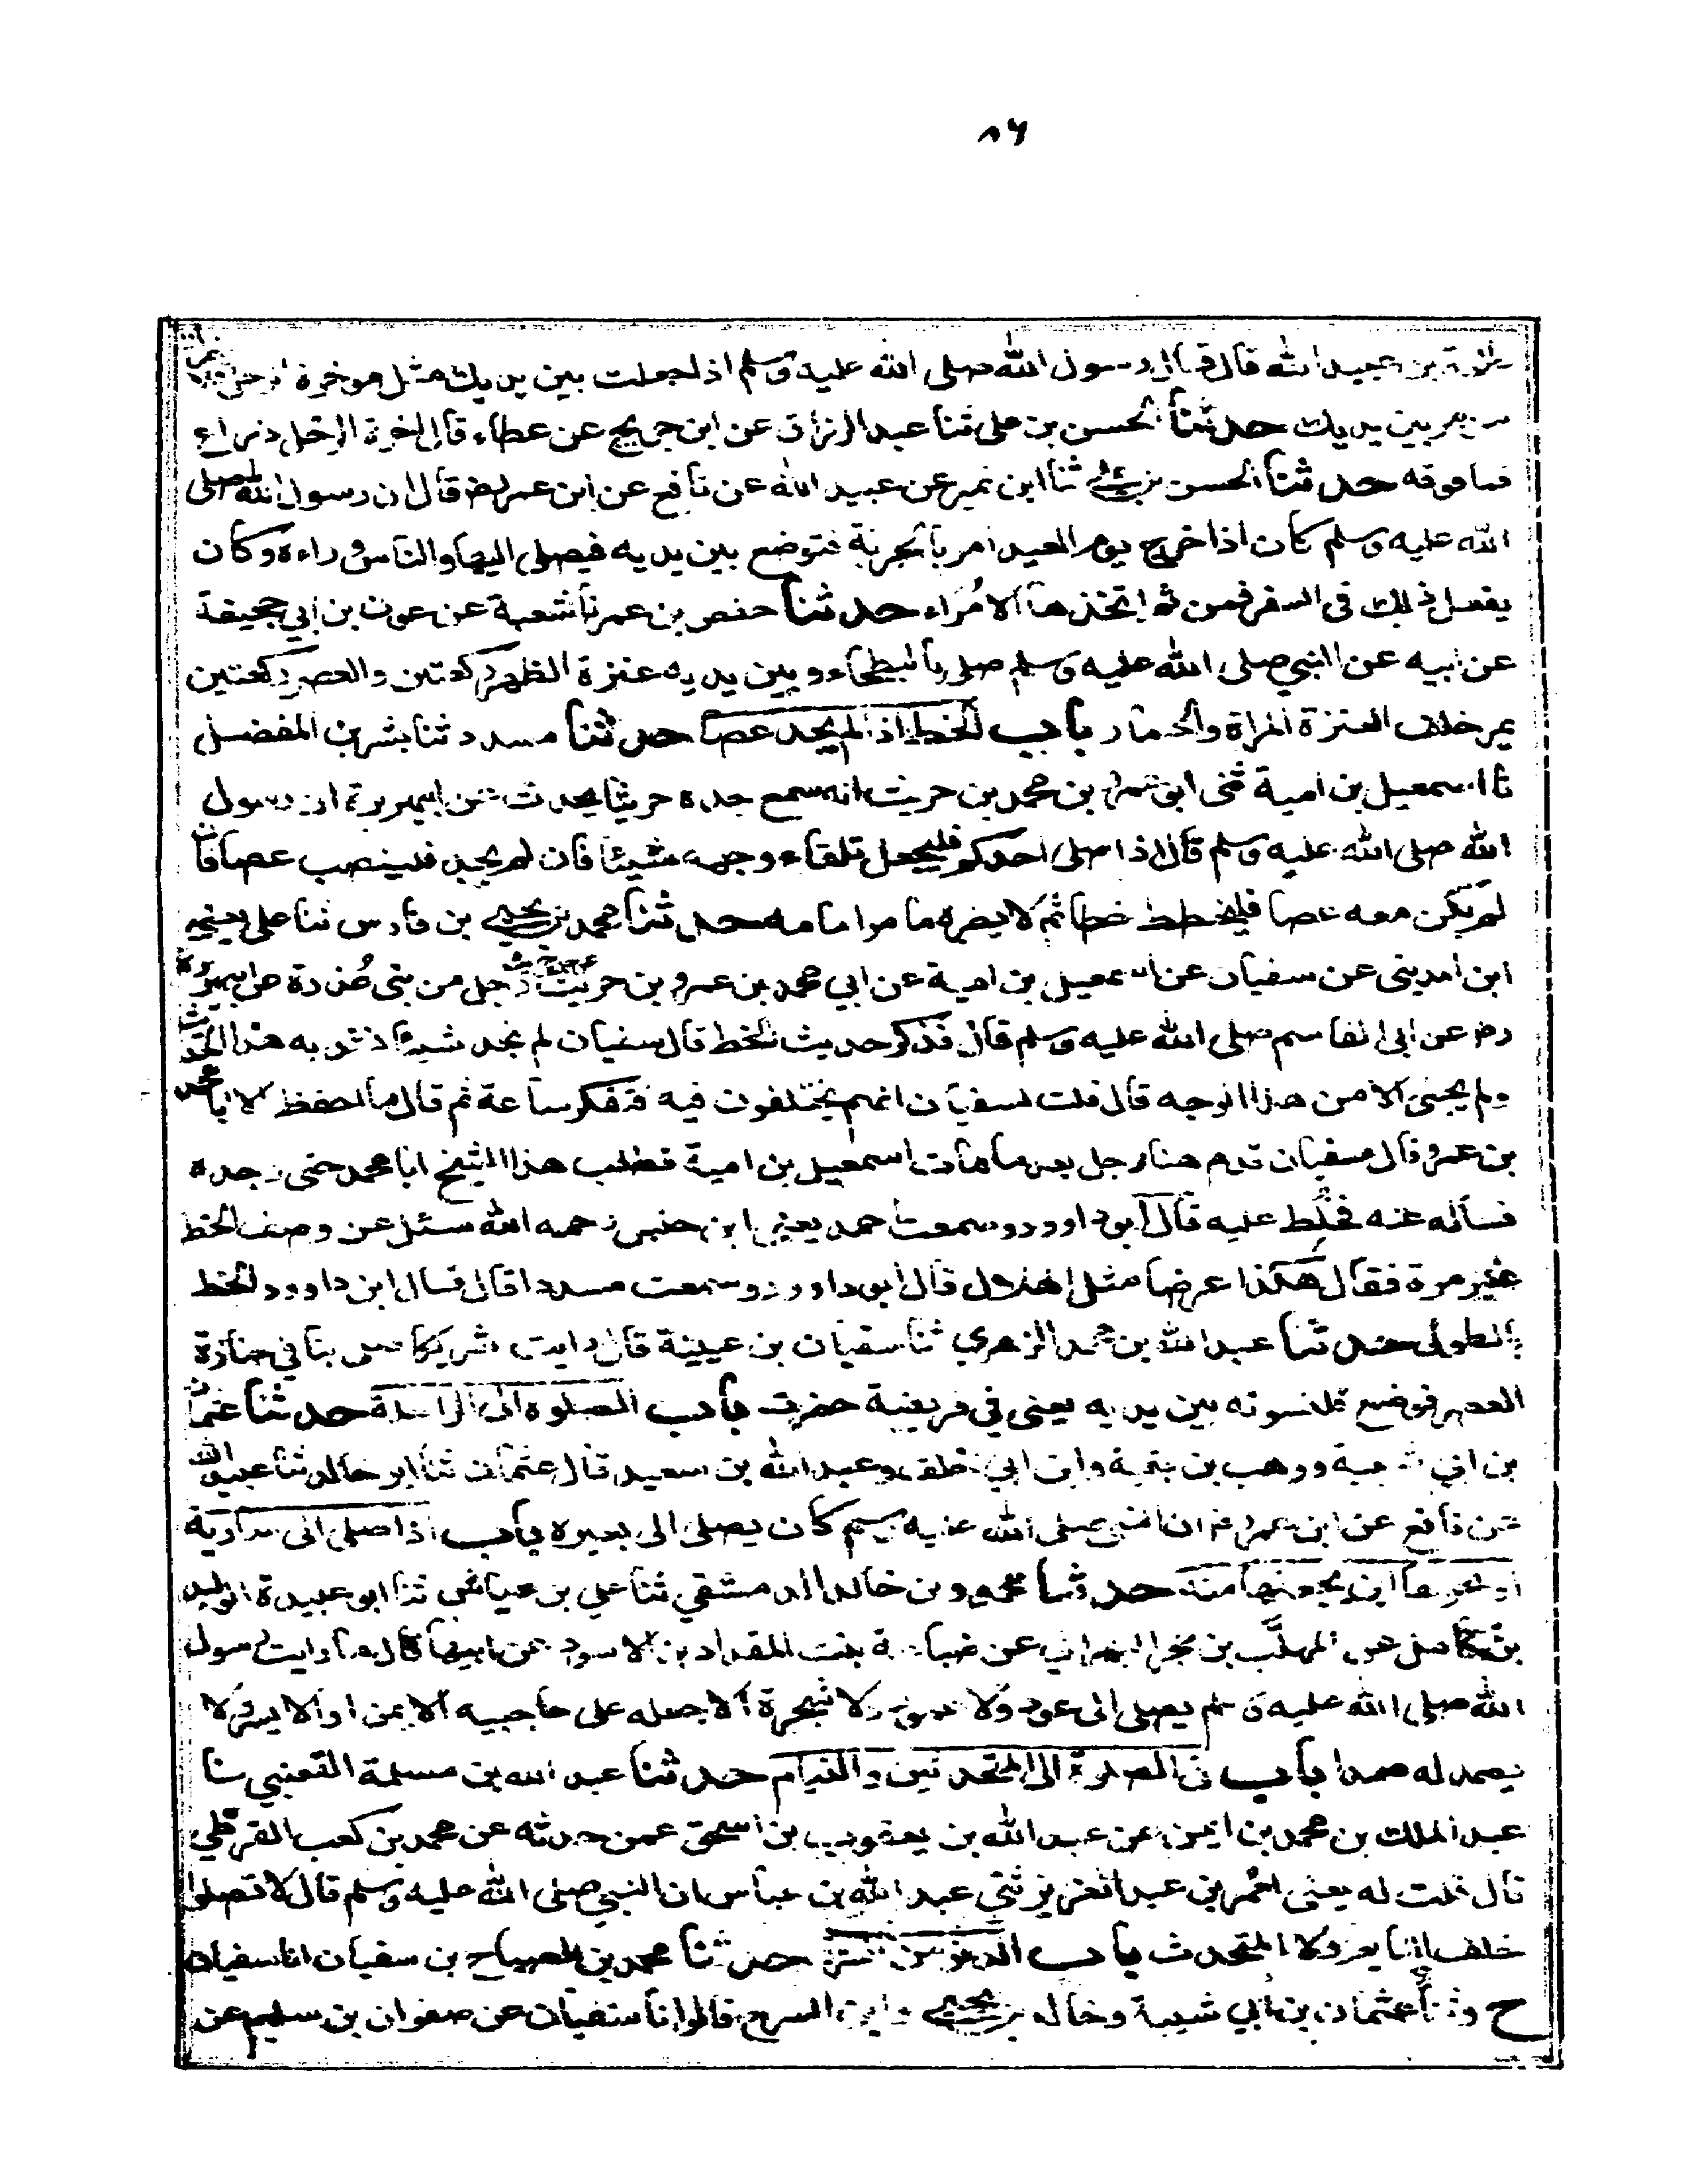 ٨٦
طلحة بن عبيد الله قال قال رسول الله صلى الله عليه وسلم اذا جعلت بين يديك مثل موخرة الرحل
من مر بين يديك حدثنا الحسن بن على ثنا عبد الرزاق عن ابن جريج عن عطاء قال اخرة الرحل ذراع
فما فوقه حدثنا الحسن بن على ثنا ابن نمير عن عبيد الله عن نافع عن ابن عمر رض قال ان رسول الله صلى
الله عليه وسلم كان اذا خرج يوم العيد امر بالحربة فتوضع بين يديه فيصلى اليها والناس وراءه وكان
يفعل ذلك فى السفر فمن ثم اتخذها الامراء حدثنا حفص بن عمر نا شعبة عن عون بن ابي جحيفة
عن ابيه عن النبي صلى الله عليه وسلم صلى بالبطحاء وبين يديه عنزة الظهر ركعتين والعصر ركعتين
يمر خلف العنزة المراة والحمار باب الخط اذا لم يجد عصا حدثنا مسدد ثنا بشر بن المفضل
نا اسمعيل بن امية ثنى ابو عمرو بن محمد بن حريث انه سمع جده حريثا يحدث عن ابيهريرة ان رسول
الله صلى الله عليه وسلم قال اذا صلى احدكم فليجعل تلقاء وجهه شيئا فان لم يجد فلينصب عصا فان
لم يكن معه عصا فليخطط خطا ثم لا يضره ما مر امامه حدثنا محمد بن يحيى بن فارس ثنا على يعني
ابن المدينى عن سفيان عن اسمعيل بن امية عن ابي محمد بن عمرو بن حريث عن جده حريث رجل من بنى عذرة عن ابيهريرة
رض عن ابى القاسم صلى الله عليه وسلم قال فذكر حديث الخط قال سفيان لم نجد شيئا نشد به هذا الحديث
ولم يجئ الا من هذا الوجه قال قلت لسفيان انهم يختلفون فيه ففكر ساعة ثم قال ما احفظ الا ابا محمد
بن عمرو قال سفيان قدم هنا رجل بعد ما مات اسمعيل بن امية فطلب هذا الشيخ ابا محمد حتى وجده
فسأله عنه فخلط عليه قال ابو داوود وسمعت احمد يعنى ابن حنبل رحمه الله سئل عن وصف الخط
غير مرة فقال هكذا عرضا مثل الهلال قال ابو داوود وسمعت مسددا قال قال ابن داوود الخط
بالطول حدثنا عبد الله بن محمد الزهري ثنا سفيان بن عيينة قال رايت شريكا صلى بنا في جنازة
العصر فوضع قلنسوته بين يديه يعنى في فريضة حضرت باب الصلوة الى الراحلة حدثنا عثمان
بن ابي شيبة ووهب بن بقية وابن ابي خلف وعبد الله بن سعيد قال عثمان ثنا ابو خالد ثنا عبيد الله
عن نافع عن ابن عمر ان النبى صلى الله عليه وسلم كان يصلى الى بعيره باب اذا صلى الى سارية
او نحوها اين يجعلها منه حدثنا محمود بن خالد الدمشقي ثنا علي بن عياش ثنا ابو عبيدة الوليد
بن كامل عن المهلب بن حجر البهراني عن ضباعة بنت المقداد بن الاسود عن ابيها قال ما رايت رسول
الله صلى الله عليه وسلم يصلى الى عود ولا عمود ولا شجرة الا جعله على حاجبيه الايمن او الايسر ولا
يصمد له صمدا باب الصلوة الى المتحدثين والنيام حدثنا عبد الله بن مسلمة القعنبي نا
عبد الملك بن محمد بن ايمن عن عبد الله بن يعقوب بن اسحق عمن حدثه عن محمد بن كعب القرظي
قال قلت له يعنى لعمر بن عبد العزيز ثنى عبد الله بن عباس ان النبي صلى الله عليه وسلم قال لا تصلوا
خلف النايم ولا المتحدث باب الدنو من السترة حدثنا محمد بن الصباح بن سفيان انا سفيان
ح وثنا عثمان بن ابي شيبة وحامد بن يحيى وابن السرح قالوا نا سفيان عن صفوان بن سليم عن